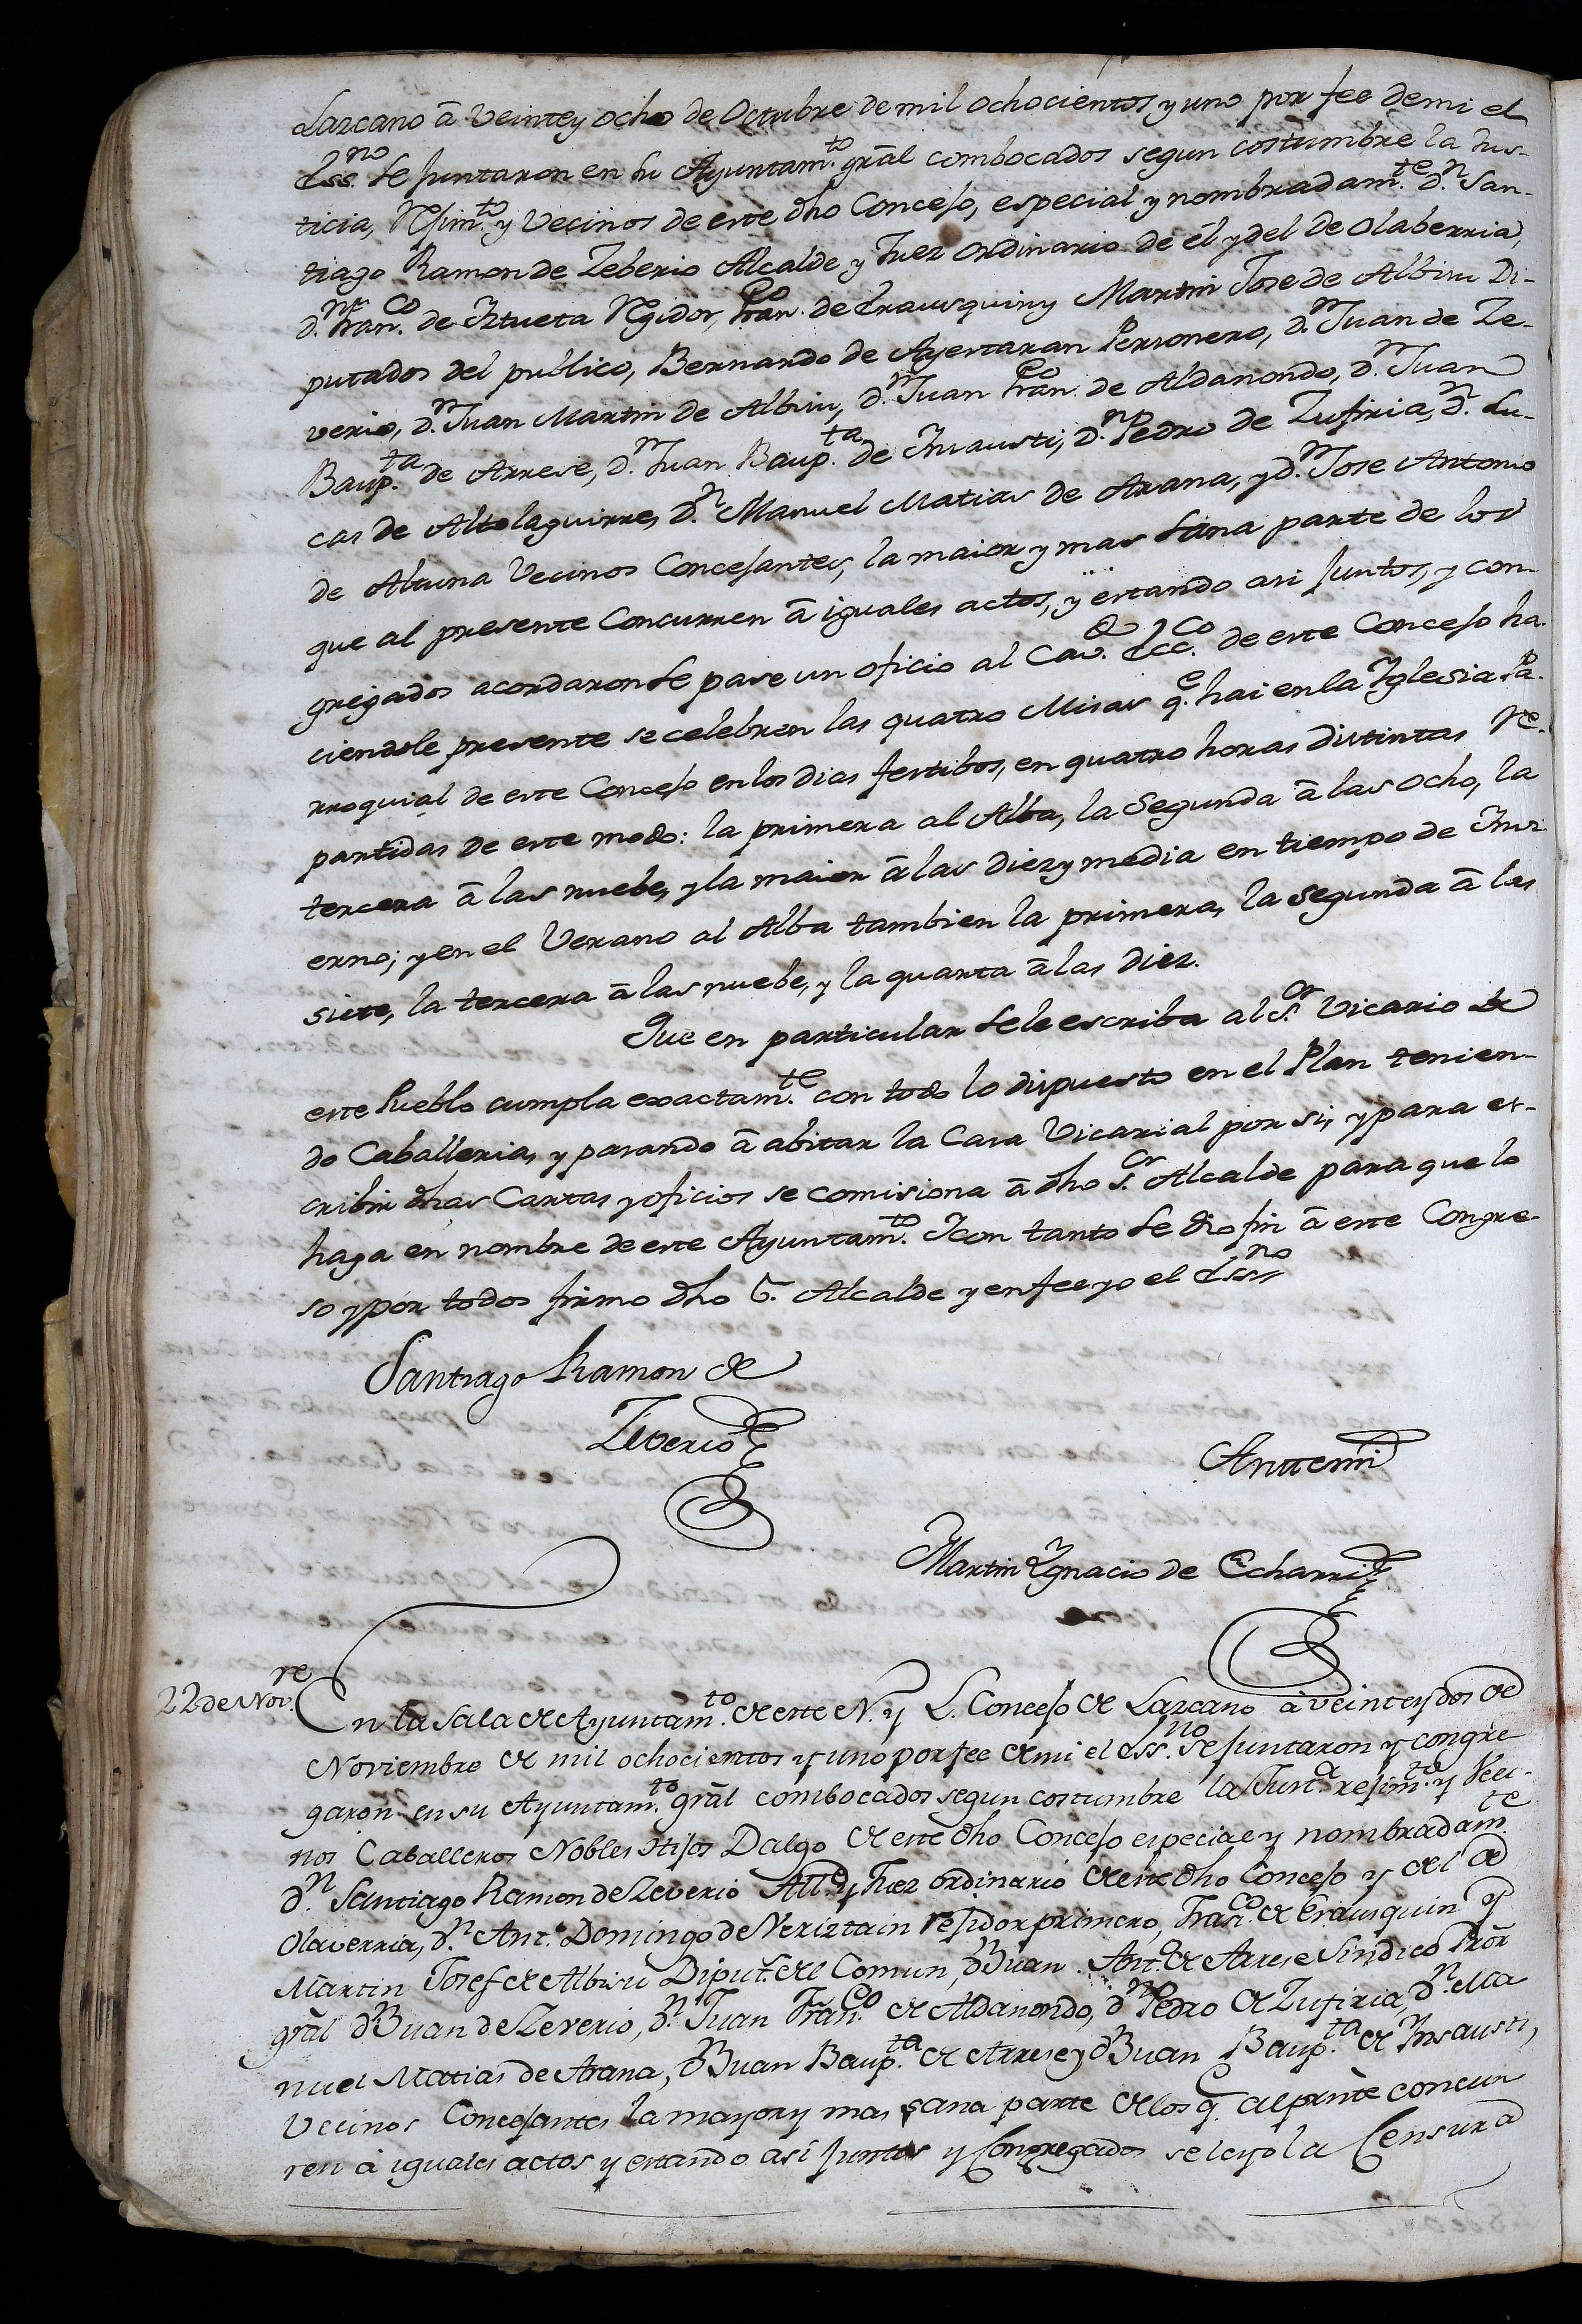 Lazcano â Veinte y ocho de Octubre de mil ochocientos y uno por fee demi el
Ess.no se juntaron en su Ayuntam.to grãl combocados segun costumbre la Jus-
ticia, Rejim.to y Vecinos de este dho Concejo, especial y nombradam.te d.n San-
tiago Ramon de Zeberio Alcalde y Juez Ordinario de él y del de Olaberria,
d.n Fran.co de Iztueta Regidor, Fran.co de Erausquin y Martin Jose de Albisu Di-
putados del publico, Bernardo de Ayestaran Personero, d.n Juan de Ze-
verio, d.n Juan Martin de Albisu, d.n Juan Fran.co de Aldanondo, d.n Juan
Baup.ta de Arrese, d.n Juan Baup.ta de Insausti, d.n Pedro de Zufiria, d.n Lu-
cas de Altolaguirre, d.n Manuel Matias de Arana, y d.n Jose Antonio
de Altuna Vecinos Concejantes, la maior y mas sana parte de los
que al presente Concurren â iguales actos, y estando asi juntos, y con-
gregados acordaron se pase un oficio al Cav.do Ecc.co de este Concejo ha-
ciendole presente se celebren las quatro Misas q.e hai en la Iglesia Pa-
rroquial de este Concejo en los dias festibos, en quatro horas distintas re-
partidas de este modo: la primera al Alba, la Segunda â las ocho, la
tercera â las nuebe, y la maior â las diez y media en tiempo de Invi-
erno; y en el Verano al Alba tambien la primera, la segunda â las
siete, la tercera â las nuebe, y la quarta â las diez.
Que en particular se le escriba al S.or Vicario de
este Pueblo cumpla exactam.te con todo lo dispuesto en el Plan tenien-
do Caballeria, y pasando â abitar la Casa Vicarial por si, y para es-
cribir dhas Cartas y oficios se comisiona â dho S.or Alcalde para que lo
haga en nombre de este Ayuntam.to Y con tanto se dio fin â este Congre-
so y por todos firmo dho S. Alcalde y en fee yo el Ess.no
Santiago Ramon de
Zeverio
Antemi
Martin Ygnacio de Echarri
22 de Nov.re
En la Sala de Ayuntam.to de este N. y L. Concejo de Lazcano â veinte y dos de
Noviembre de mil ochocientos y uno por fee de mi el Ess.no se juntaron y congre
garon en su Ayuntam.to grãl combocados segun costumbre la Just.a rejim.to y Veci-
nos Caballeros Nobles Hijos Dalgo de este dho Concejo especial y nombradam.te
d.n Santiago Ramon de Zeverio All.e y Juez ordinario de este dho Concejo y del de
Olaverria, d.n Ant.o Domingo de Veriztain rejidor primero, Fras.co de Erausquin y
Martin Josef de Albisu Diput.s del Comun, d.n Juan Ant.o de Arrese Sindico Pror
grãl d.n Juan de Zeverio, d.n Juan Fran.co de Aldanondo, d.n Pedro de Zufiria, d.n Ma
nuel Matias de Arana, d.n Juan Baup.ta de Arrese y d.n Juan Baup.ta de Insausti,
Vecinos Concejantes la mayor y mas sana parte de los q.e al prnte concur
ren â iguales actos y estando asi juntos y Congregados se leyo la Censura